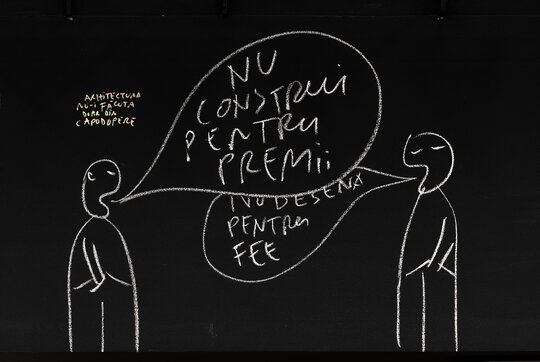 ARHITECTURA
NU-I FĂCUTĂ
DOAR DIN
CAPODOPERE
NU
CONSTRUI
PENTRU
PREMII
NU DESENA
PENTRU
FEE